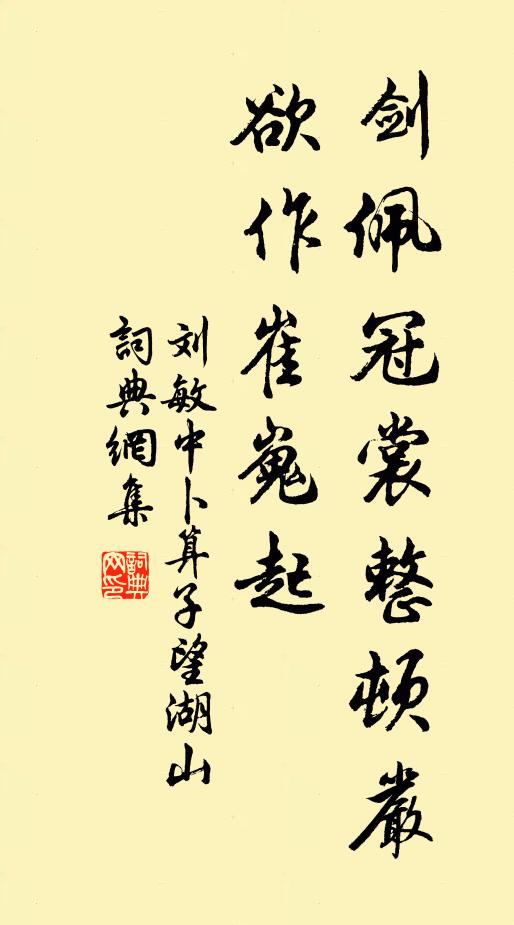 剑佩冠裳整顿嚴
欲作崔嵬起
刘敏中卜算子望湖山
詞典網集
詞典
网印